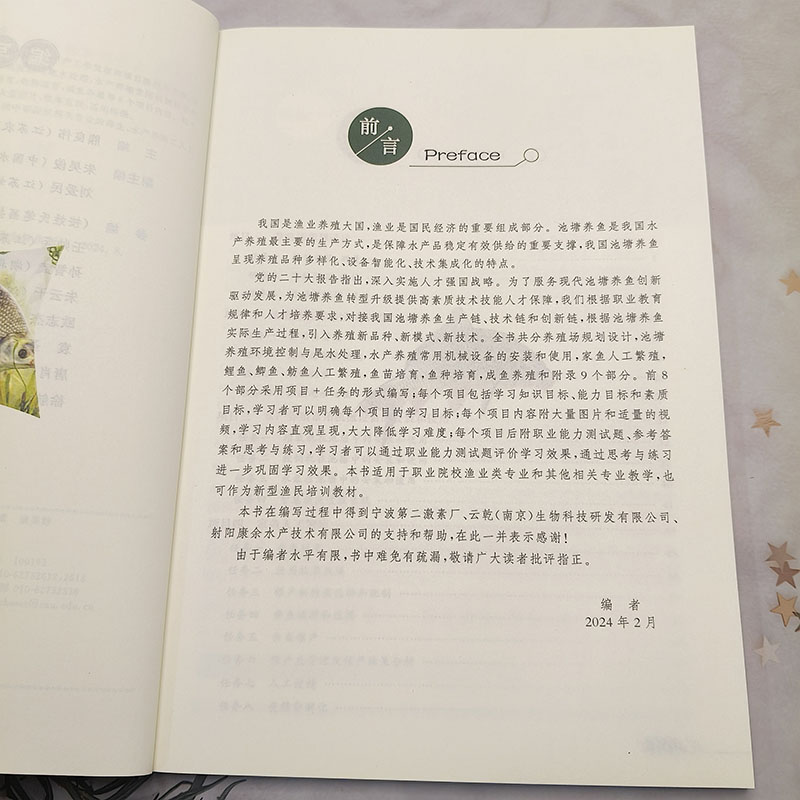 前言
Preface
我国是渔业养殖大国,渔业是国民经济的重要组成部分。池塘养鱼是我国水
产养殖最主要的生产方式,是保障水产品稳定有效供给的重要支撑,我国池塘养鱼
呈现养殖品种多样化、设备智能化、技术集成化的特点。
党的二十大报告指出,深入实施人才强国战略。为了服务现代池塘养鱼创新
驱动发展,为池塘养鱼转型升级提供高素质技术技能人才保障,我们根据职业教育
规律和人才培养要求,对接我国池塘养鱼生产链、技术链和创新链,根据池塘养鱼
实际生产过程,引入养殖新品种、新模式、新技术。全书共分养殖场规划设计,池塘
养殖环境控制与尾水处理,水产养殖常用机械设备的安装和使用,家鱼人工繁殖,
鲤鱼、鲫鱼、鲂鱼人工繁殖,鱼苗培育,鱼种培育,成鱼养殖和附录9个部分。前8
个部分采用项目+任务的形式编写;每个项目包括学习知识目标、能力目标和素质
目标,学习者可以明确每个项目的学习目标;每个项目内容附大量图片和适量的视
频,学习内容直观呈现,大大降低学习难度;每个项目后附职业能力测试题、参考答
案和思考与练习,学习者可以通过职业能力测试题评价学习效果,通过思考与练习
进一步巩固学习效果。本书适用于职业院校渔业类专业和其他相关专业教学,也
可作为新型渔民培训教材。
本书在编写过程中得到宁波第二激素厂、云乾(南京)生物科技研发有限公司、
射阳康余水产技术有限公司的支持和帮助,在此一并表示感谢!
由于编者水平有限,书中难免有疏漏,敬请广大读者批评指正。
编 者
2024年2月